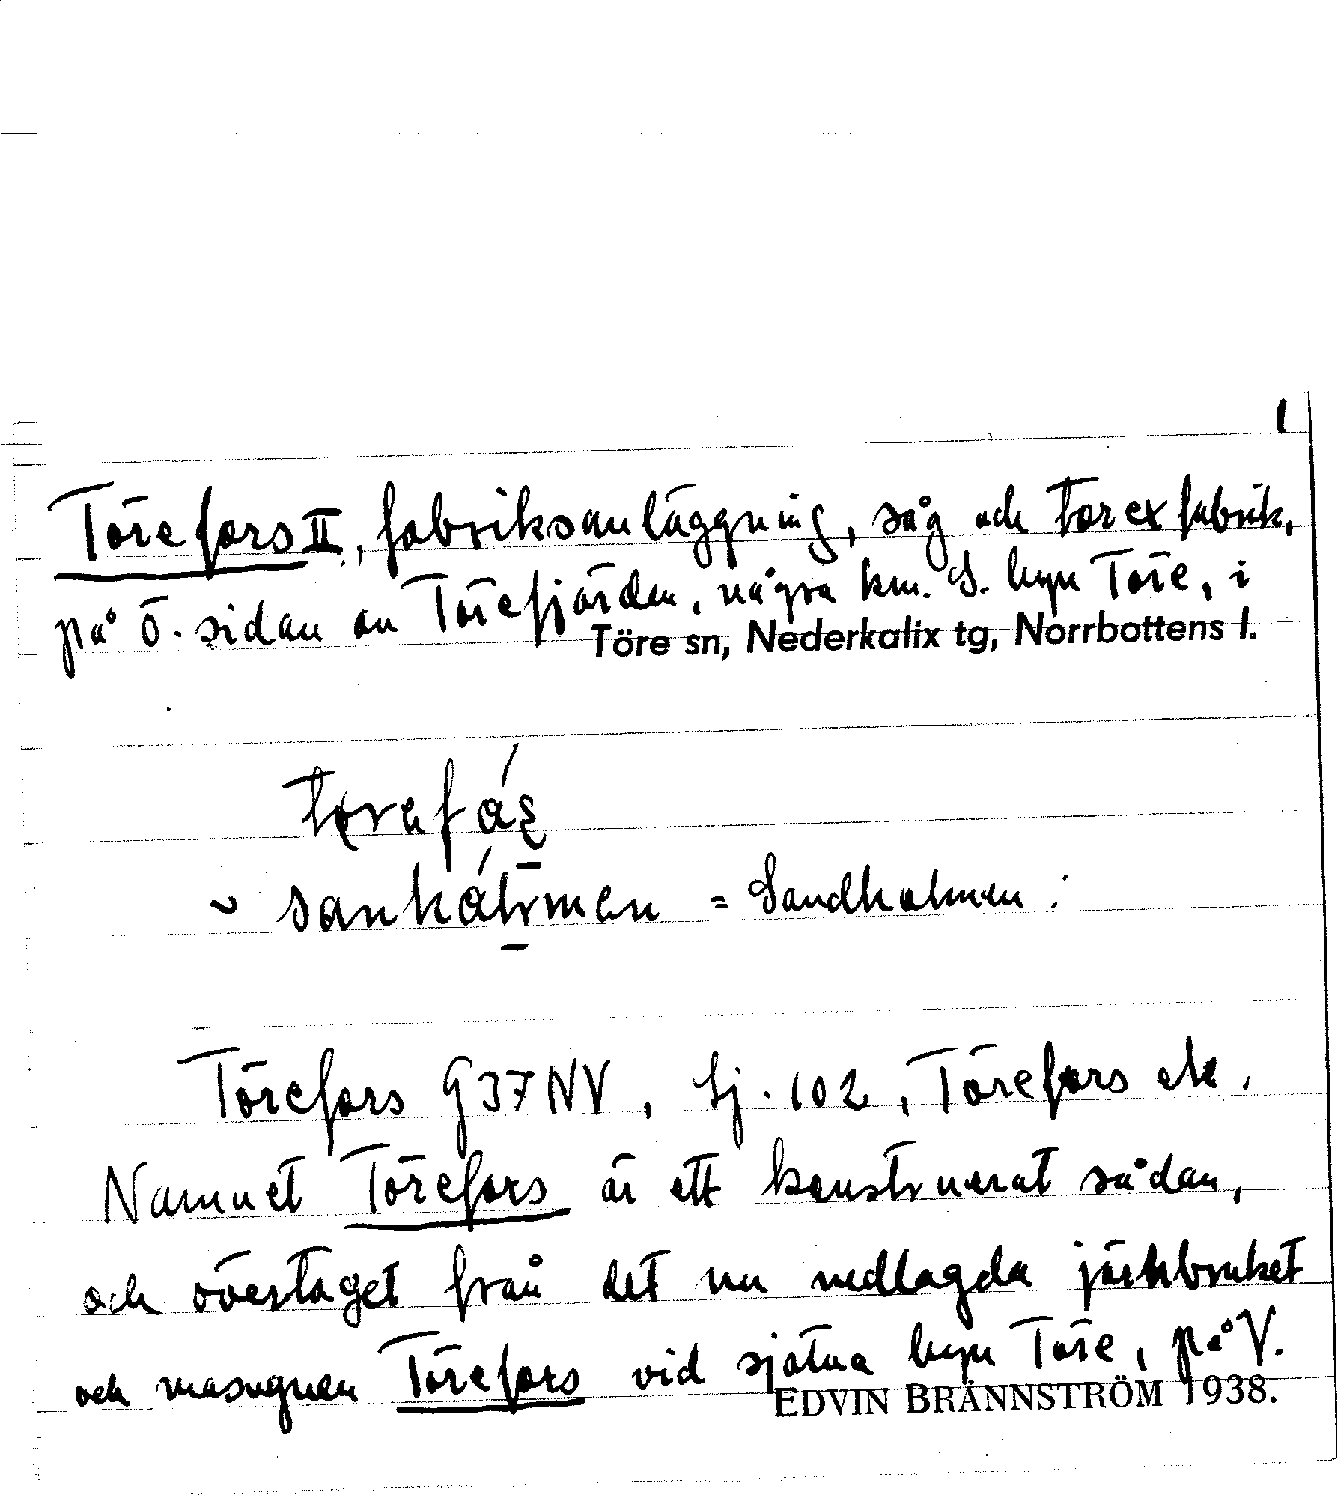 1
Törefors II, fabriksanläggning, såg och Torexfabrik,
på Ö. sidan av Törefjärden, några km. S. byn Töre, i
Töre sn, Nederkalix tg, Norrbottens l.
= Sandholmen :
Törefors G 37 NV, Sj. 102, Törefors etc.
Namnet Törefors är ett konstruerat sådan,
och övertaget från det nu nedlagda järnbruket
och masugnen Törefors vid själva byn Töre, på V.
EDVIN BRÄNNSTRÖM 1938.